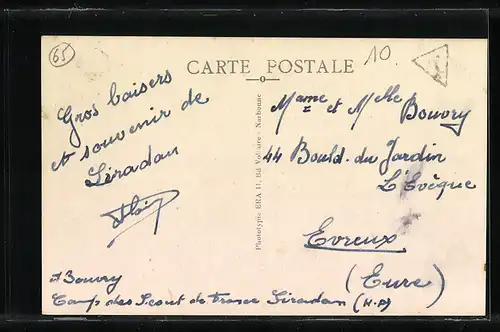 65
10
CARTE POSTALE
Gros baisers
et souvenir de
Siradan
Phototypie ERA 11, Bd Voltaire - Narbonne
Mame et Mlle
Bouvry
44 Bould. du Jardin
L'Evêque
Evreux
(Eure)
Bouvry
Camp des Scout de France Siradan (H-P)